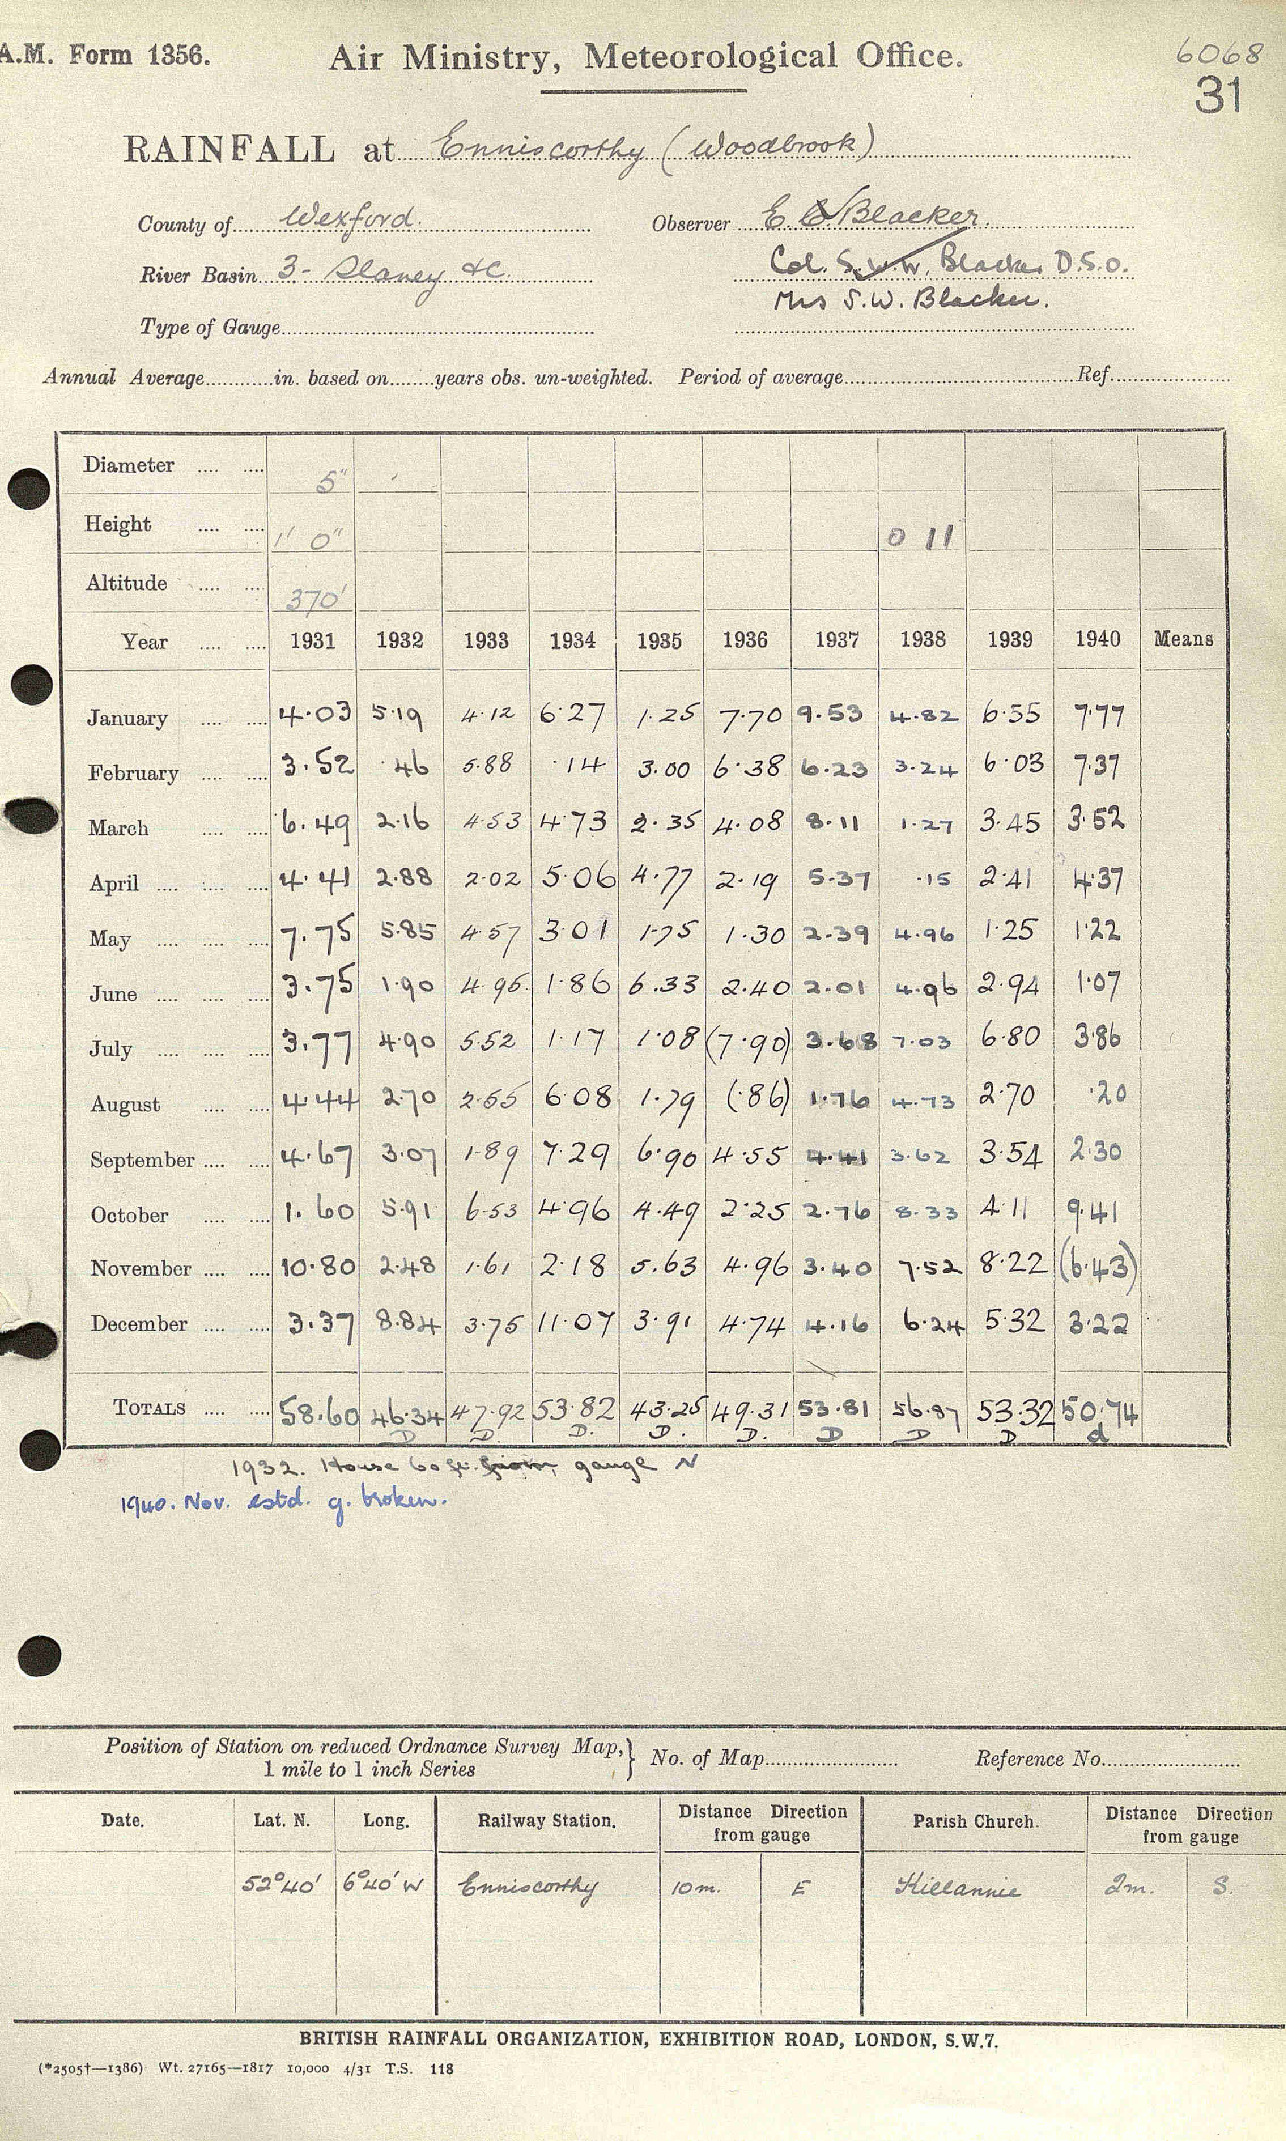 A.M. Form 1356. Air Ministry, Meteorological Office. 6068
31
RAINFALL at Enniscorthy (Woodbrook)
County of Wexford. Observer E C Blacker.
River Basin 3 - Slaney &c. Col. S.W.W. Blacker D.S.O.
Mrs S.W. Blacker.
Type of Gauge
Annual Average in. based on years obs. un-weighted. Period of average Ref.
Diameter 5"
Height 1' 0" 0 11
Altitude 370'
Year 1931 1932 1933 1934 1935 1936 1937 1938 1939 1940 Means
January 4.03 5.19 4.12 6.27 1.25 7.70 9.53 4.82 6.55 7.77
February 3.52 .46 5.88 .14 3.00 6.38 6.23 3.24 6.03 7.37
March 6.49 2.16 4.53 4.73 2.35 4.08 8.11 1.27 3.45 3.52
April 4.41 2.88 2.02 5.06 4.77 2.19 5.37 .15 2.41 4.37
May 7.75 5.85 4.57 3.01 1.75 1.30 2.39 4.96 1.25 1.22
June 3.75 1.90 4.95 1.86 6.33 2.40 2.01 4.96 2.94 1.07
July 3.77 4.90 5.52 1.17 1.08 (7.90) 3.68 7.03 6.80 3.86
August 4.44 2.70 2.55 6.08 1.79 (.86) 1.76 4.73 2.70 .20
September 4.67 3.07 1.89 7.29 6.90 4.55 4.41 3.62 3.54 2.30
October 1.60 5.91 6.53 4.96 4.49 2.25 2.76 8.33 4.11 9.41
November 10.80 2.48 1.61 2.18 5.63 4.96 3.40 7.52 8.22 (6.43)
December 3.37 8.84 3.75 11.07 3.91 4.74 4.16 6.24 5.32 3.22
TOTALS 58.60 46.34 47.92 53.82 43.25 49.31 53.81 56.87 53.32 50.74
D D D. D. D. D D D d
1932. House 60 ft. from gauge N
1940. Nov. estd. g. broken.
Position of Station on reduced Ordnance Survey Map, 1 mile to 1 inch Series } No. of Map Reference No.
Date. Lat. N. Long. Railway Station. Distance Direction from gauge Parish Church. Distance Direction from gauge
52°40' 6°40' W Enniscorthy 10 m. E Killannie 2m. S.
BRITISH RAINFALL ORGANIZATION, EXHIBITION ROAD, LONDON, S.W.7.
(*2505†—1386) Wt. 27165—1817 10,000 4/31 T.S. 118